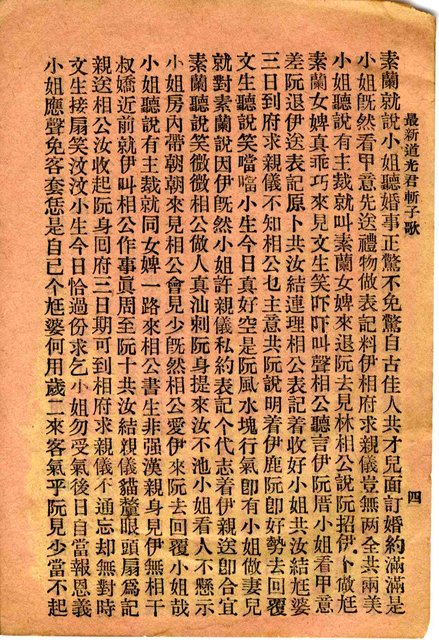 最新道光君斬子歌
素蘭就說小姐聽婚事正驚不免驚自古佳人共才兒面訂婚約滿滿是
小姐既然看甲意先送禮物做表記料伊相府求親儀豈無兩全共兩美
小姐聽說有主裁就叫素蘭女婢來退阮去見林相公說阮招伊卜做尪
素蘭女婢真乖巧來見文生笑吓吓叫聲相公聽言伊阮厝小姐看甲意
差阮退伊送表記原卜共汝結連理相公表記着收好小姐共汝結尪婆
三日到府求親儀不知相公乜主意共阮說明着伊鹿阮即好勢去回覆
文生聽說笑噹噹小生今日真好空是阮風水塊行氣即有小姐做妻兒
就對素蘭說因伊既然小姐許親儀私約表記个代志着伊親送即合宜
素蘭聽說笑微微相公做人真汕刺阮身提來汝不池小姐看人不懸示
小姐房內帶朝朝來見相公會見少既然相公愛伊來阮去回覆小姐哉
小姐聽說有主裁就同女婢一路來相公書生非强漢親身見伊無相干
叔嬌近前就伊叫相公作事眞周至阮十共汝結親儀貓釐眼頭扇爲記
親送相公汝收起阮身回府三日期可到相府求親儀不通忘却無對時
文生接扇笑汶汶小生今日恰過份求乞小姐勿受氣後日自當報恩義
小姐應聲免客套恁是自已个尪婆何用歲二來客氣乎阮見少當不起
四